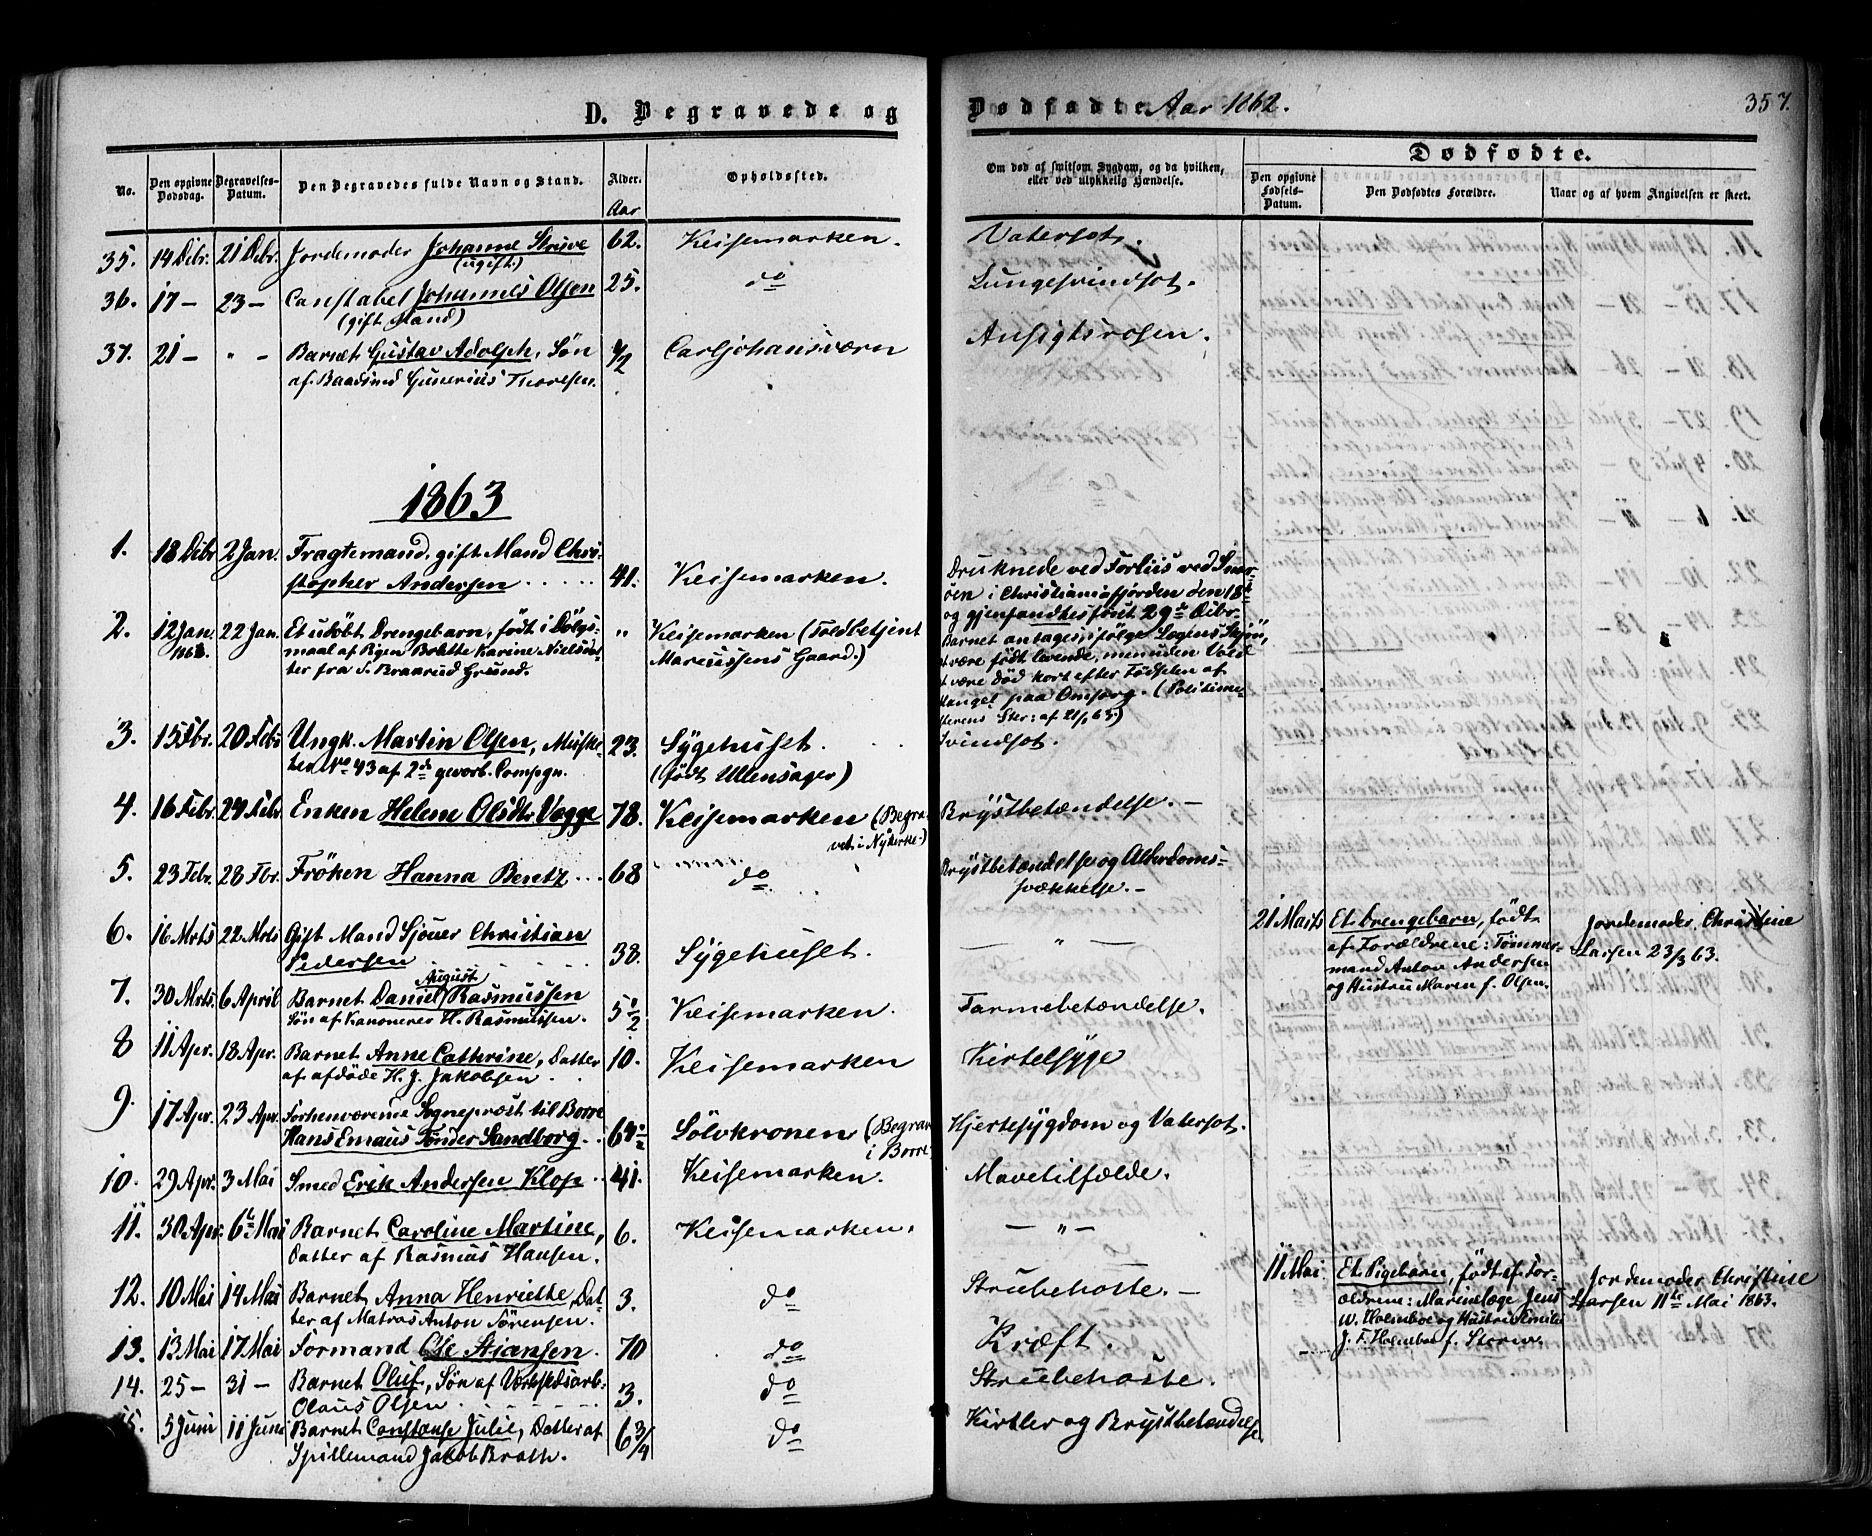 D. Begravede og Dødfødte Aar 1862. 357.
No.
Den opgivne Dødsdag.
Begravelses-Datum.
Den Begravedes fulde Navn og Stand.
Alder.
Aar
Opholdssted.
Om død af smitsom Sygdom, og da hvilken,
eller ved ulykkelig Hændelse.
Dødfødte.
Den opgivne Fødsels-Datum.
Den Dødfødtes Forældre.
Naar og af hvem Angivelsen er skeet.
35. 14 Dcbr. 21 Dcbr. Jordemoder Johanne Struve 62. Keisemarken. Vatersot.
(ugift.)
36. 17 — 23 — Constabel Johannes Olsen 25. do Lungesvindsot.
(gift Mand)
37. 21 — " — Barnet Gustav Adolph, Søn 1/2 Carljohansværn Ansigtsrosen.
af Baadsmd Gunerius Thoresen.
1863
1. 18 Dcbr 2 Jan. Fragtemand, gift Mand Chri-
stopher Andersen 41. Keisemarken. Druknede ved Forliis ved Snar-
øen i Christianiafjorden den 18de
og gjenfandtes først 29de Dcbr.
2. 12 Jan. 1863. 22 Jan. Et udöbt Drengebarn, født i Dölgs- " Keisemarken (Toldbetjent Barnet antages, ifölge Lægens Skjön,
maal af Pigen Brette Karine Nielsdat- Marcussens Gaard.) at være født levende, men uden Vold
ter fra S. Braarud Grund. at være död kort efter Födselen af
Mangel paa Omsorg. (Politime-
sterens Skr: af 21/1 63.)
3. 15 Fbr. 20 Febr Ungk. Martin Olsen, Muske- 23. Sygehuset. Svindsot.
ter No 43 af 2de gevorb. Compgn. (født Ullensager)
4. 16 Febr. 24 Febr. Enken Helene Olsdtr Vegge 78. Keisemarken (Begra- Brÿstbetændelse. —
vet i Nykirke.)
5. 23 Febr. 28 Fbr. Fröken Hanna Bentz 68 do Brÿstbetændelse og Alderdoms-
svækkelse. —
6. 16 Mrts 22 Mrts Gift Mand Sjouer Christian
Pedersen 38. Sÿgehuset. — " —
21 Marts Et Drengebarn, født Jordemoder Christine
af Forældrene: Tömmer- Larsen 23/3 63.
mand Anton Andersen
og Hustru Maren f. Olsen.
7. 30 Mrts. 6 April Barnet Daniel August Rasmussen 5 1/2 Keisemarken. Tarmebetændelse.
Sön af Kanoneer H. Rasmussen.
8 11 Apr. 18 Apr. Barnet Anne Cathrine, Datter 10. Keisemarken Kirtelsÿge
af afdöde H. J. Jakobsen
9 17 Apr. 23 Apr. Forhenværende Sogneprest til Borre
Hans Emaus Tönder Sandborg 64 1/2 Sölvkronen (Begrav. Hjertesÿgdom og Vatersot.
i Borre
10. 29 Apr. 3 Mai Smed Erik Andersen Klop 41. Keisemarken. Mavetilfælde.
11. 30 Apr. 6te Mai Barnet Caroline Martine, 6. Keisemarken. — " —
Datter af Rasmus Hansen.
11 Mai Et Pigebarn, født af For- Jordemoder Christine
ældrene: Marinelæge Jens Larsen 11te Mai 1863.
W. Holmboe og Hustru Emilie
J. F. Holmboe f. Storm.
12. 10 Mai 14 Mai Barnet Anna Henriette, Dat- 3. do Strubehoste. —
ter af Matros Anton Sörensen.
13. 13 Mai 17 Mai Formand Ole Stiansen. 70 do Kræft.
14. 25 — 31 — Barnet Oluf, Sön af Værkstedsarb. 3. do Strubehoste.
Olaus Olsen
15. 5 Juni 11 Juni Barnet Constanse Julie, Datter af 6 3/4 do Kirtler og Brÿstbetændelse
Spillemand Jakob Brath.